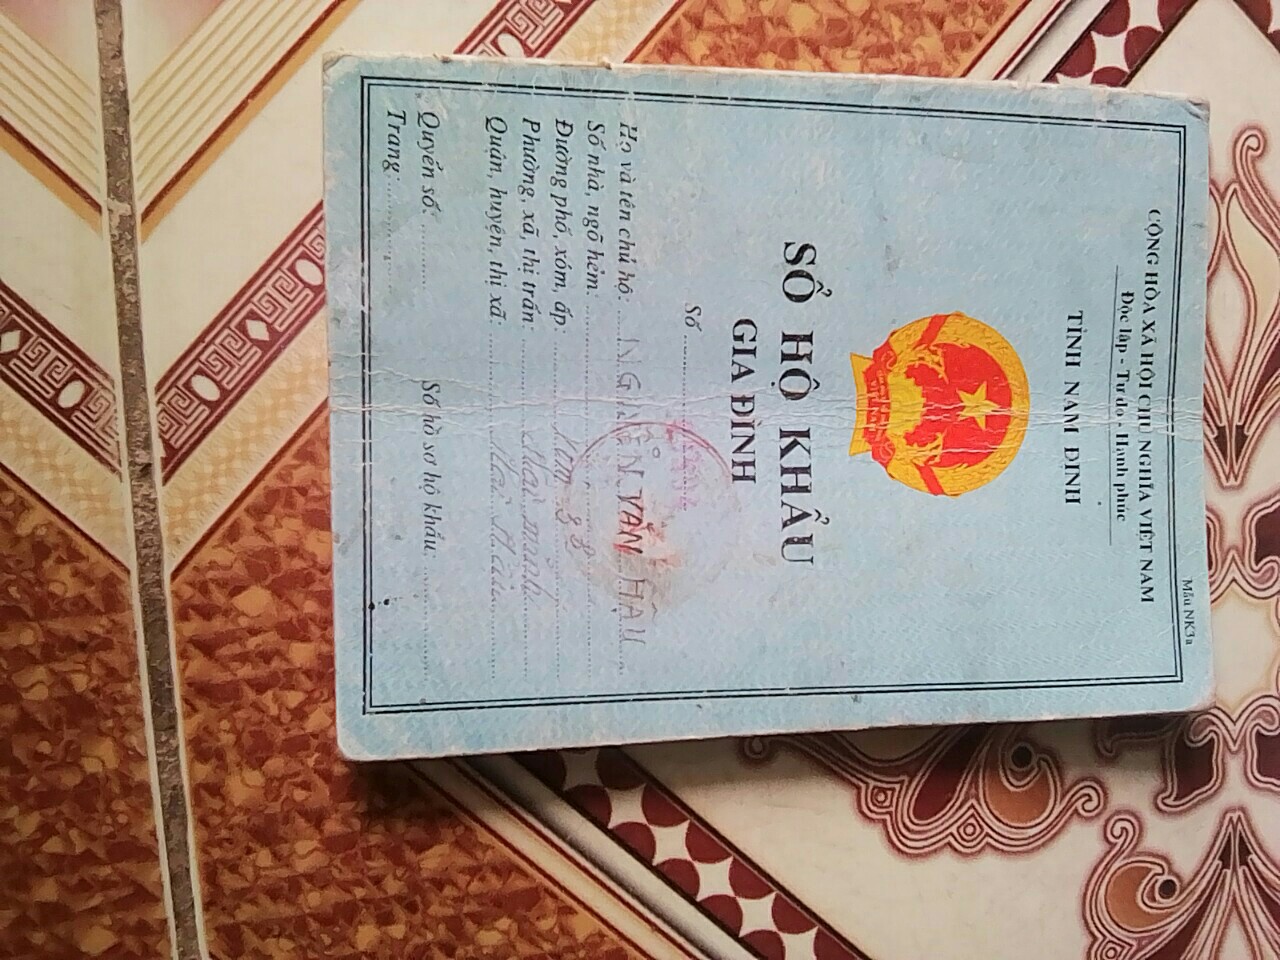 Mẫu NK3a
CỘNG HÒA XÃ HỘI CHỦ NGHĨA VIỆT NAM
Độc lập - Tự do - Hạnh phúc
TỈNH NAM ĐỊNH
SỔ HỘ KHẨU
GIA ĐÌNH
Số
Họ và tên chủ hộ: NGUYỄN VĂN HẬU
Số nhà, ngõ hẻm:
Đường phố, xóm, ấp: Xóm
Phường, xã, thị trấn:
Quận, huyện, thị xã:
Quyển số:
Số hồ sơ hộ khẩu:
Trang: